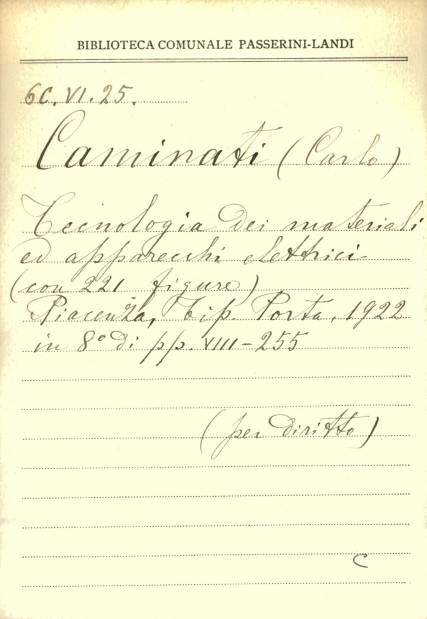 BIBLIOTECA COMUNALE PASSERINI-LANDI
6C. VI. 25.
Caminati (Carlo)
Tecnologia dei materiali
ed apparecchi elettrici
(con 221 figure)
Piacenza, Tip. Porta, 1922
in 8° di pp. VIII-255
(per diritto)
C